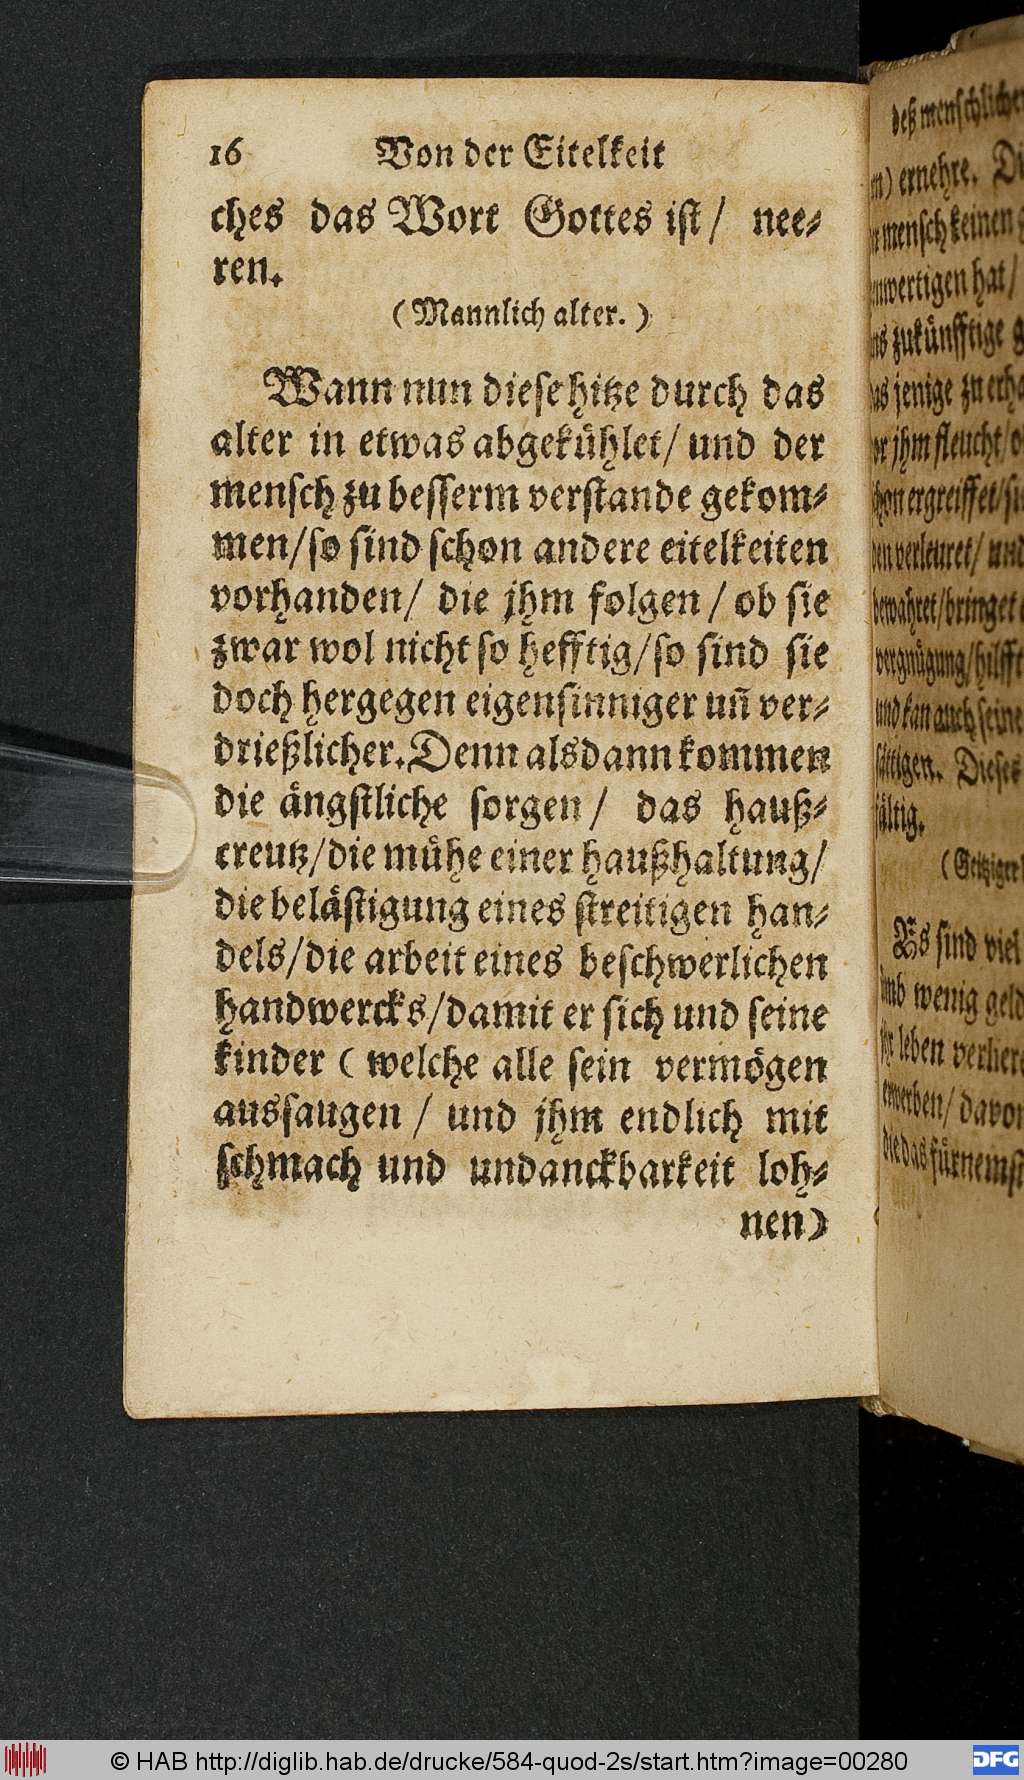 16 Von der Eitelkeit
ches das Wort Gottes ist/ nee-
ren.
(Mannlich alter.)
Wann nun diese hitze durch das
alter in etwas abgekühlet/ und der
mensch zu besserm verstande gekom-
men/so sind schon andere eitelkeiten
vorhanden/ die jhm folgen/ ob sie
zwar wol nicht so hefftig/so sind sie
doch hergegen eigensinniger uñ ver-
drießlicher. Denn alsdann kommen
die ängstliche sorgen/ das hauß-
creutz/die mühe einer haußhaltung/
die belästigung eines streitigen han-
dels/die arbeit eines beschwerlichen
handwercks/damit er sich und seine
kinder ( welche alle sein vermögen
aussaugen/ und jhm endlich mit
schmach und undanckbarkeit loh-
nen)
deß menschlichen
ernehre.
mensch keinen
hat/
zukünfftige
jenige zu
jhm fleucht/
ergreiffet/
verleuret/ und
bewahret/bringet
vergnügung/hilfft
und kan auch seine
Dieses
(Geitziger
Es sind viel
umb wenig geld
leben
davon
die das fürnemst
© HAB http://diglib.hab.de/drucke/584-quod-2s/start.htm?image=00280
DFG